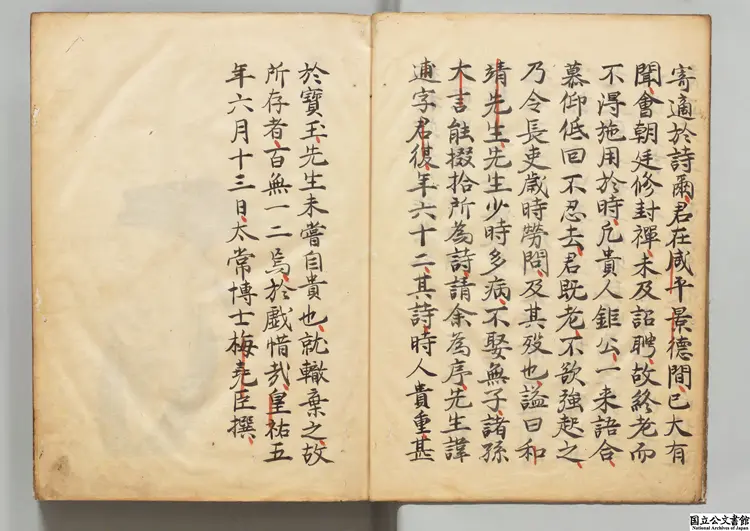 寄適於詩爾君在咸平景德間已大有
聞會朝廷修封禪未及詔聘故終老而
不得施用於時凢貴人鉅公一来語合
慕仰低回不忍去君既老不欲強起之
乃令長吏歳時勞問及其歿也謚曰和
靖先生先生少時多病不娶無子諸孫
大言能掇拾所為詩請余為序先生諱
逋字君復年六十二其詩時人貴重甚
於寳玉先生未甞自貴也就輙棄之故
所存者百無一二焉於戯惜哉皇祐五
年六月十三日太常博士梅堯臣撰
国立公文書館
National Archives of Japan